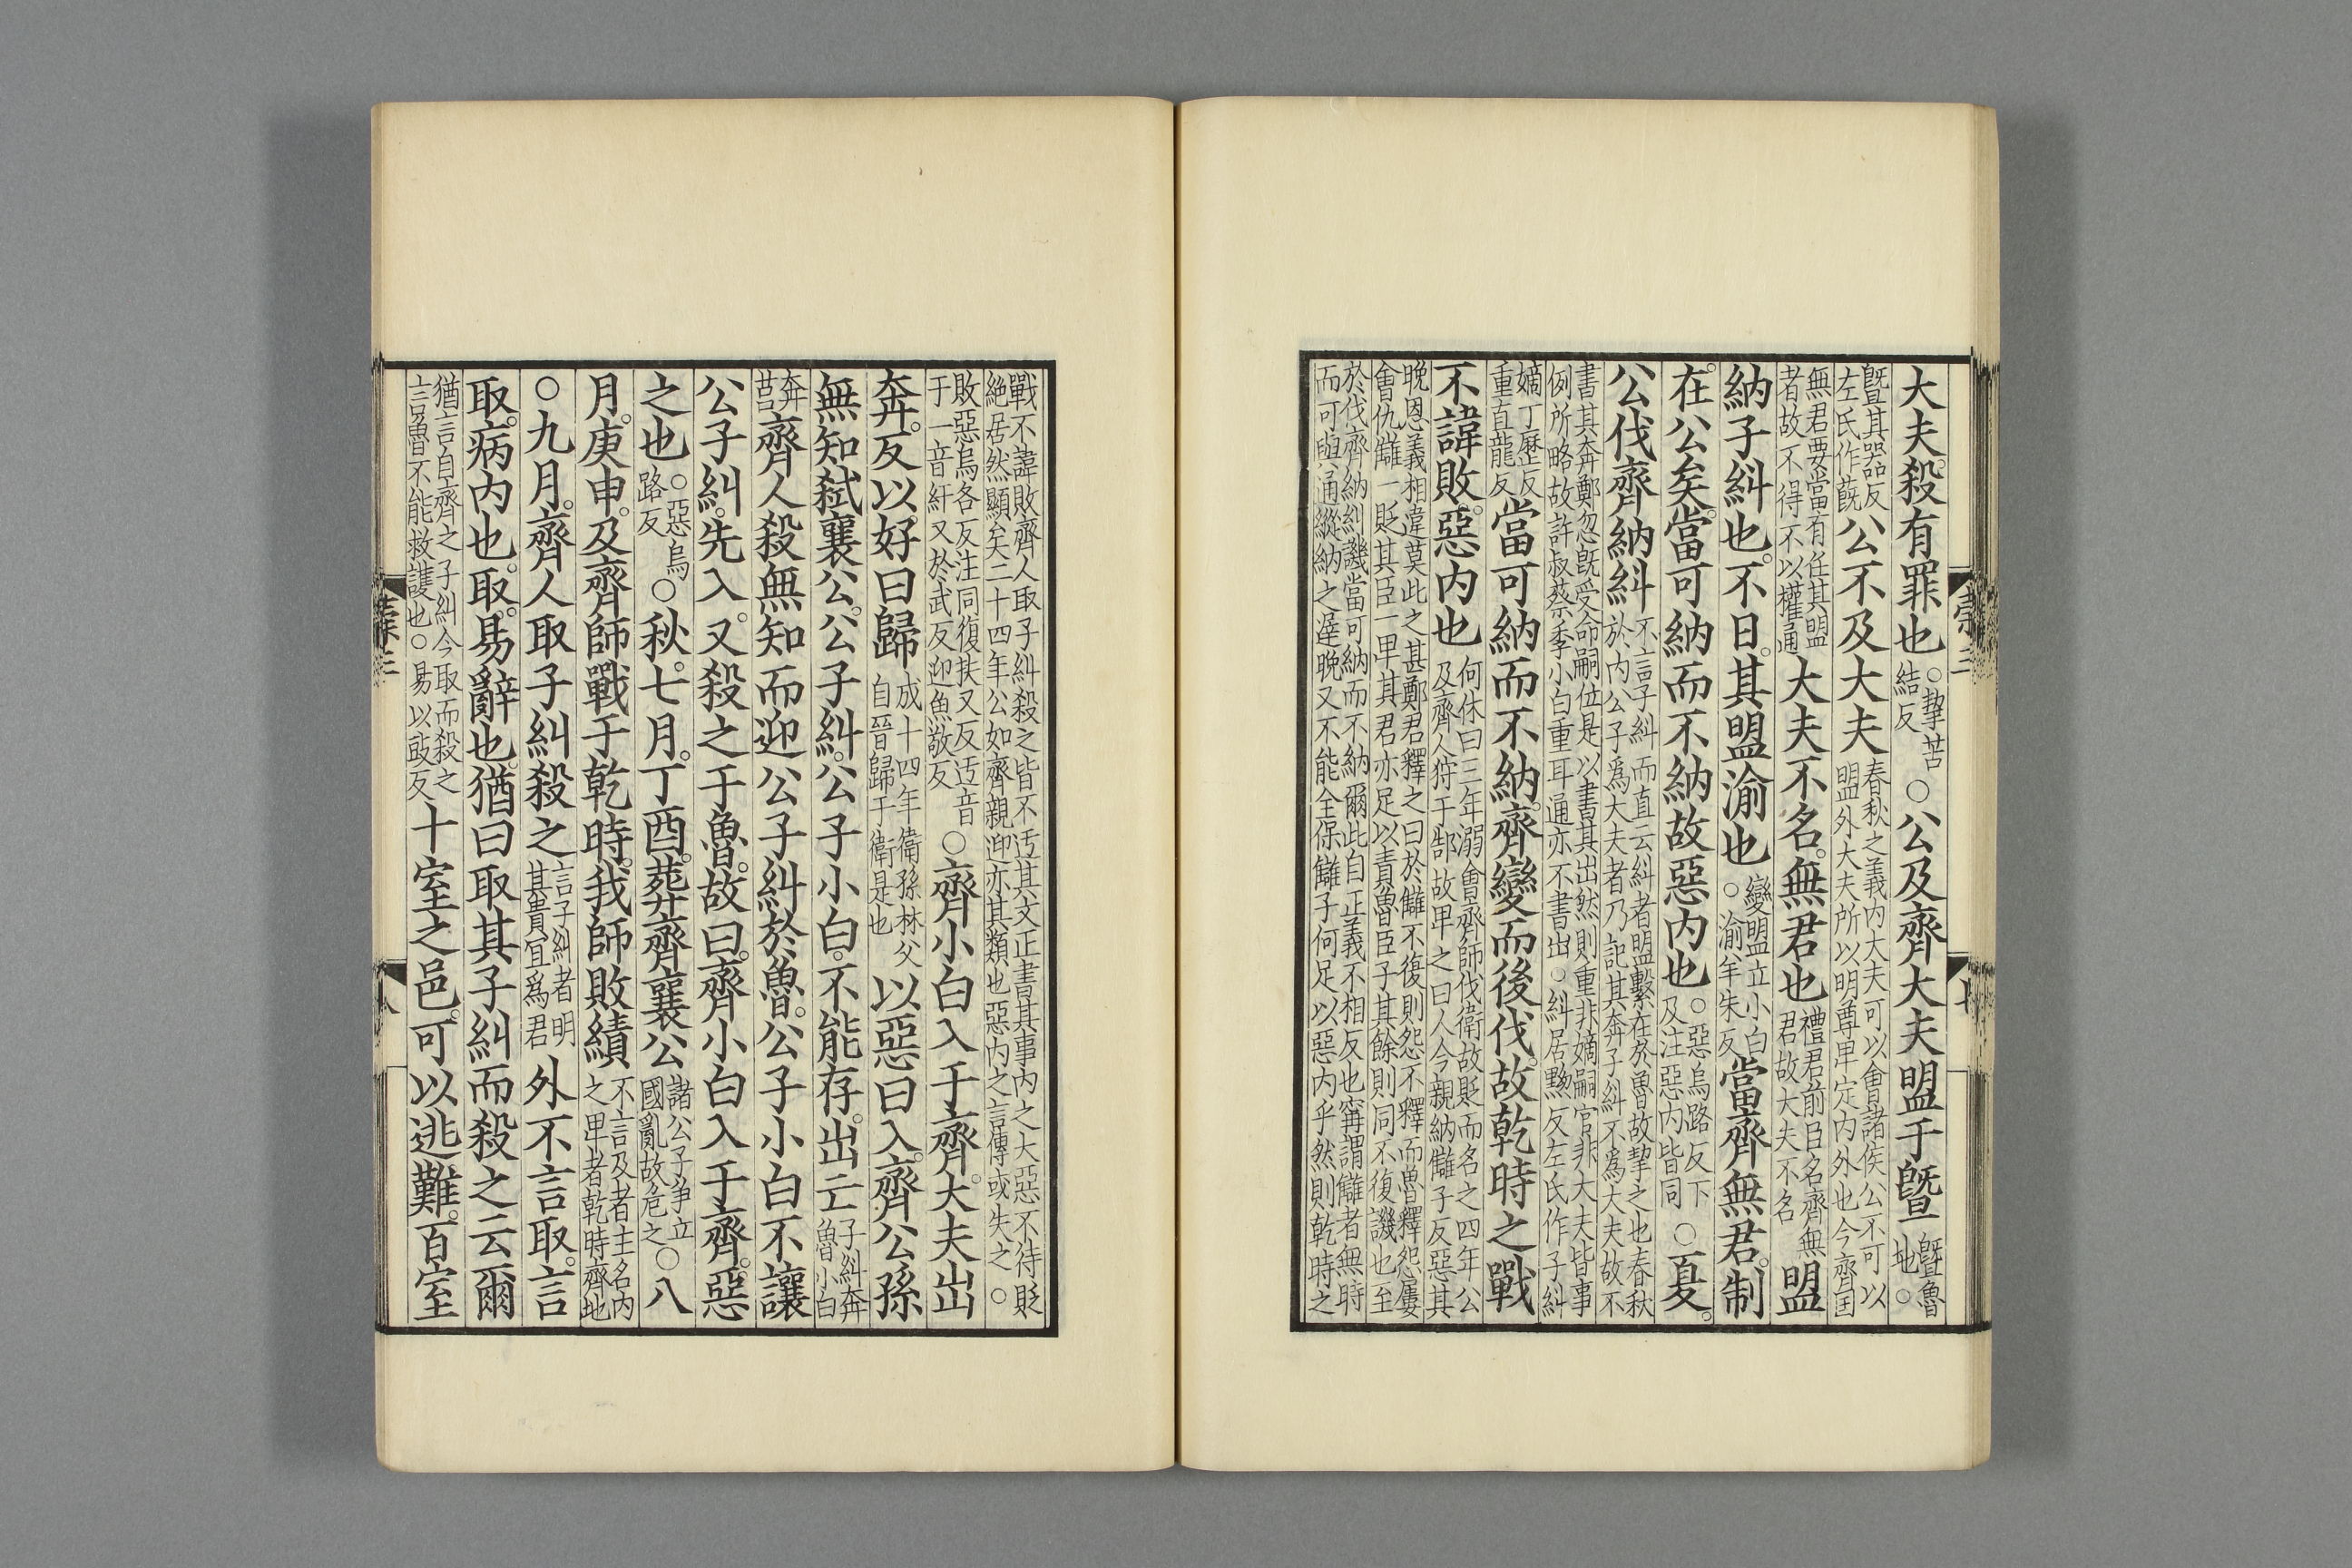 大夫殺有罪也○挈苦結反○公及齊大夫盟于暨暨魯地○
暨其器反左氏作蔇公不及大夫春秋之義内大夫可以會諸侯公不可以盟外大夫所以明尊卑定内外也今齊國
無君要當有任其盟者故不得不以權通大夫不名無君也禮君前臣名齊無君故大夫不名盟
納子糾也不日其盟渝也變盟立小白○渝羊朱反當齊無君制
在公矣當可納而不納故惡内也○惡烏路反下及注惡内皆同○夏
公伐齊納糾不言子糾而直云糾者盟繫在於魯故挈之也春秋於内公子爲大夫者乃記其奔子糾不爲大夫故不
書其奔鄭忽旣受命嗣位是以書其出然則重非嫡嗣官非大夫皆事例所略故許叔蔡季小白重耳通亦不書出○糾居黝反左氏作子糾
嫡丁歷反重直龍反當可納而不納齊變而後伐故乾時之戰
不諱敗惡内也何休曰三年溺會齊師伐衛故貶而名之四年公及齊人狩于郜故卑之曰人今親納讎子反惡其
晚恩義相違莫此之甚鄭君釋之曰於讎不復則怨不釋而魯釋怨屢會仇讎一貶其臣一卑其君亦足以責魯臣子其餘則同不復譏也至
於伐齊納糾譏當可納而不納爾此自正義不相反也甯謂讎者無時而可與通縱納之遲晚又不能全保讎子何足以惡内乎然則乾時之
戰不諱敗齊人取子糾殺之皆不迃其文正書其事内之大惡不待貶絶居然顯矣二十四年公如齊親迎亦其類也惡内之言傳或失之○
敗惡烏各反注同復扶又反迃音于一音紆又於武反迎魚敬反○齊小白入于齊大夫出
奔反以好曰歸成十四年衛孫林父自晉歸于衛是也以惡曰入齊公孫
無知弑襄公公子糾公子小白不能存出亡子糾奔魯小白
奔莒齊人殺無知而迎公子糾於魯公子小白不讓
公子糾先入又殺之于魯故曰齊小白入于齊惡
之也○惡烏路反○秋七月丁酉葬齊襄公諸公子爭立國亂故危之○八
月庚申及齊師戰于乾時我師敗績不言及者主名内之卑者乾時齊地
○九月齊人取子糾殺之言子糾者明其貴宜爲君外不言取言
取病内也取易辭也猶曰取其子糾而殺之云爾
猶言自齊之子糾今取而殺之言魯不能救護也○易以豉反十室之邑可以逃難百室